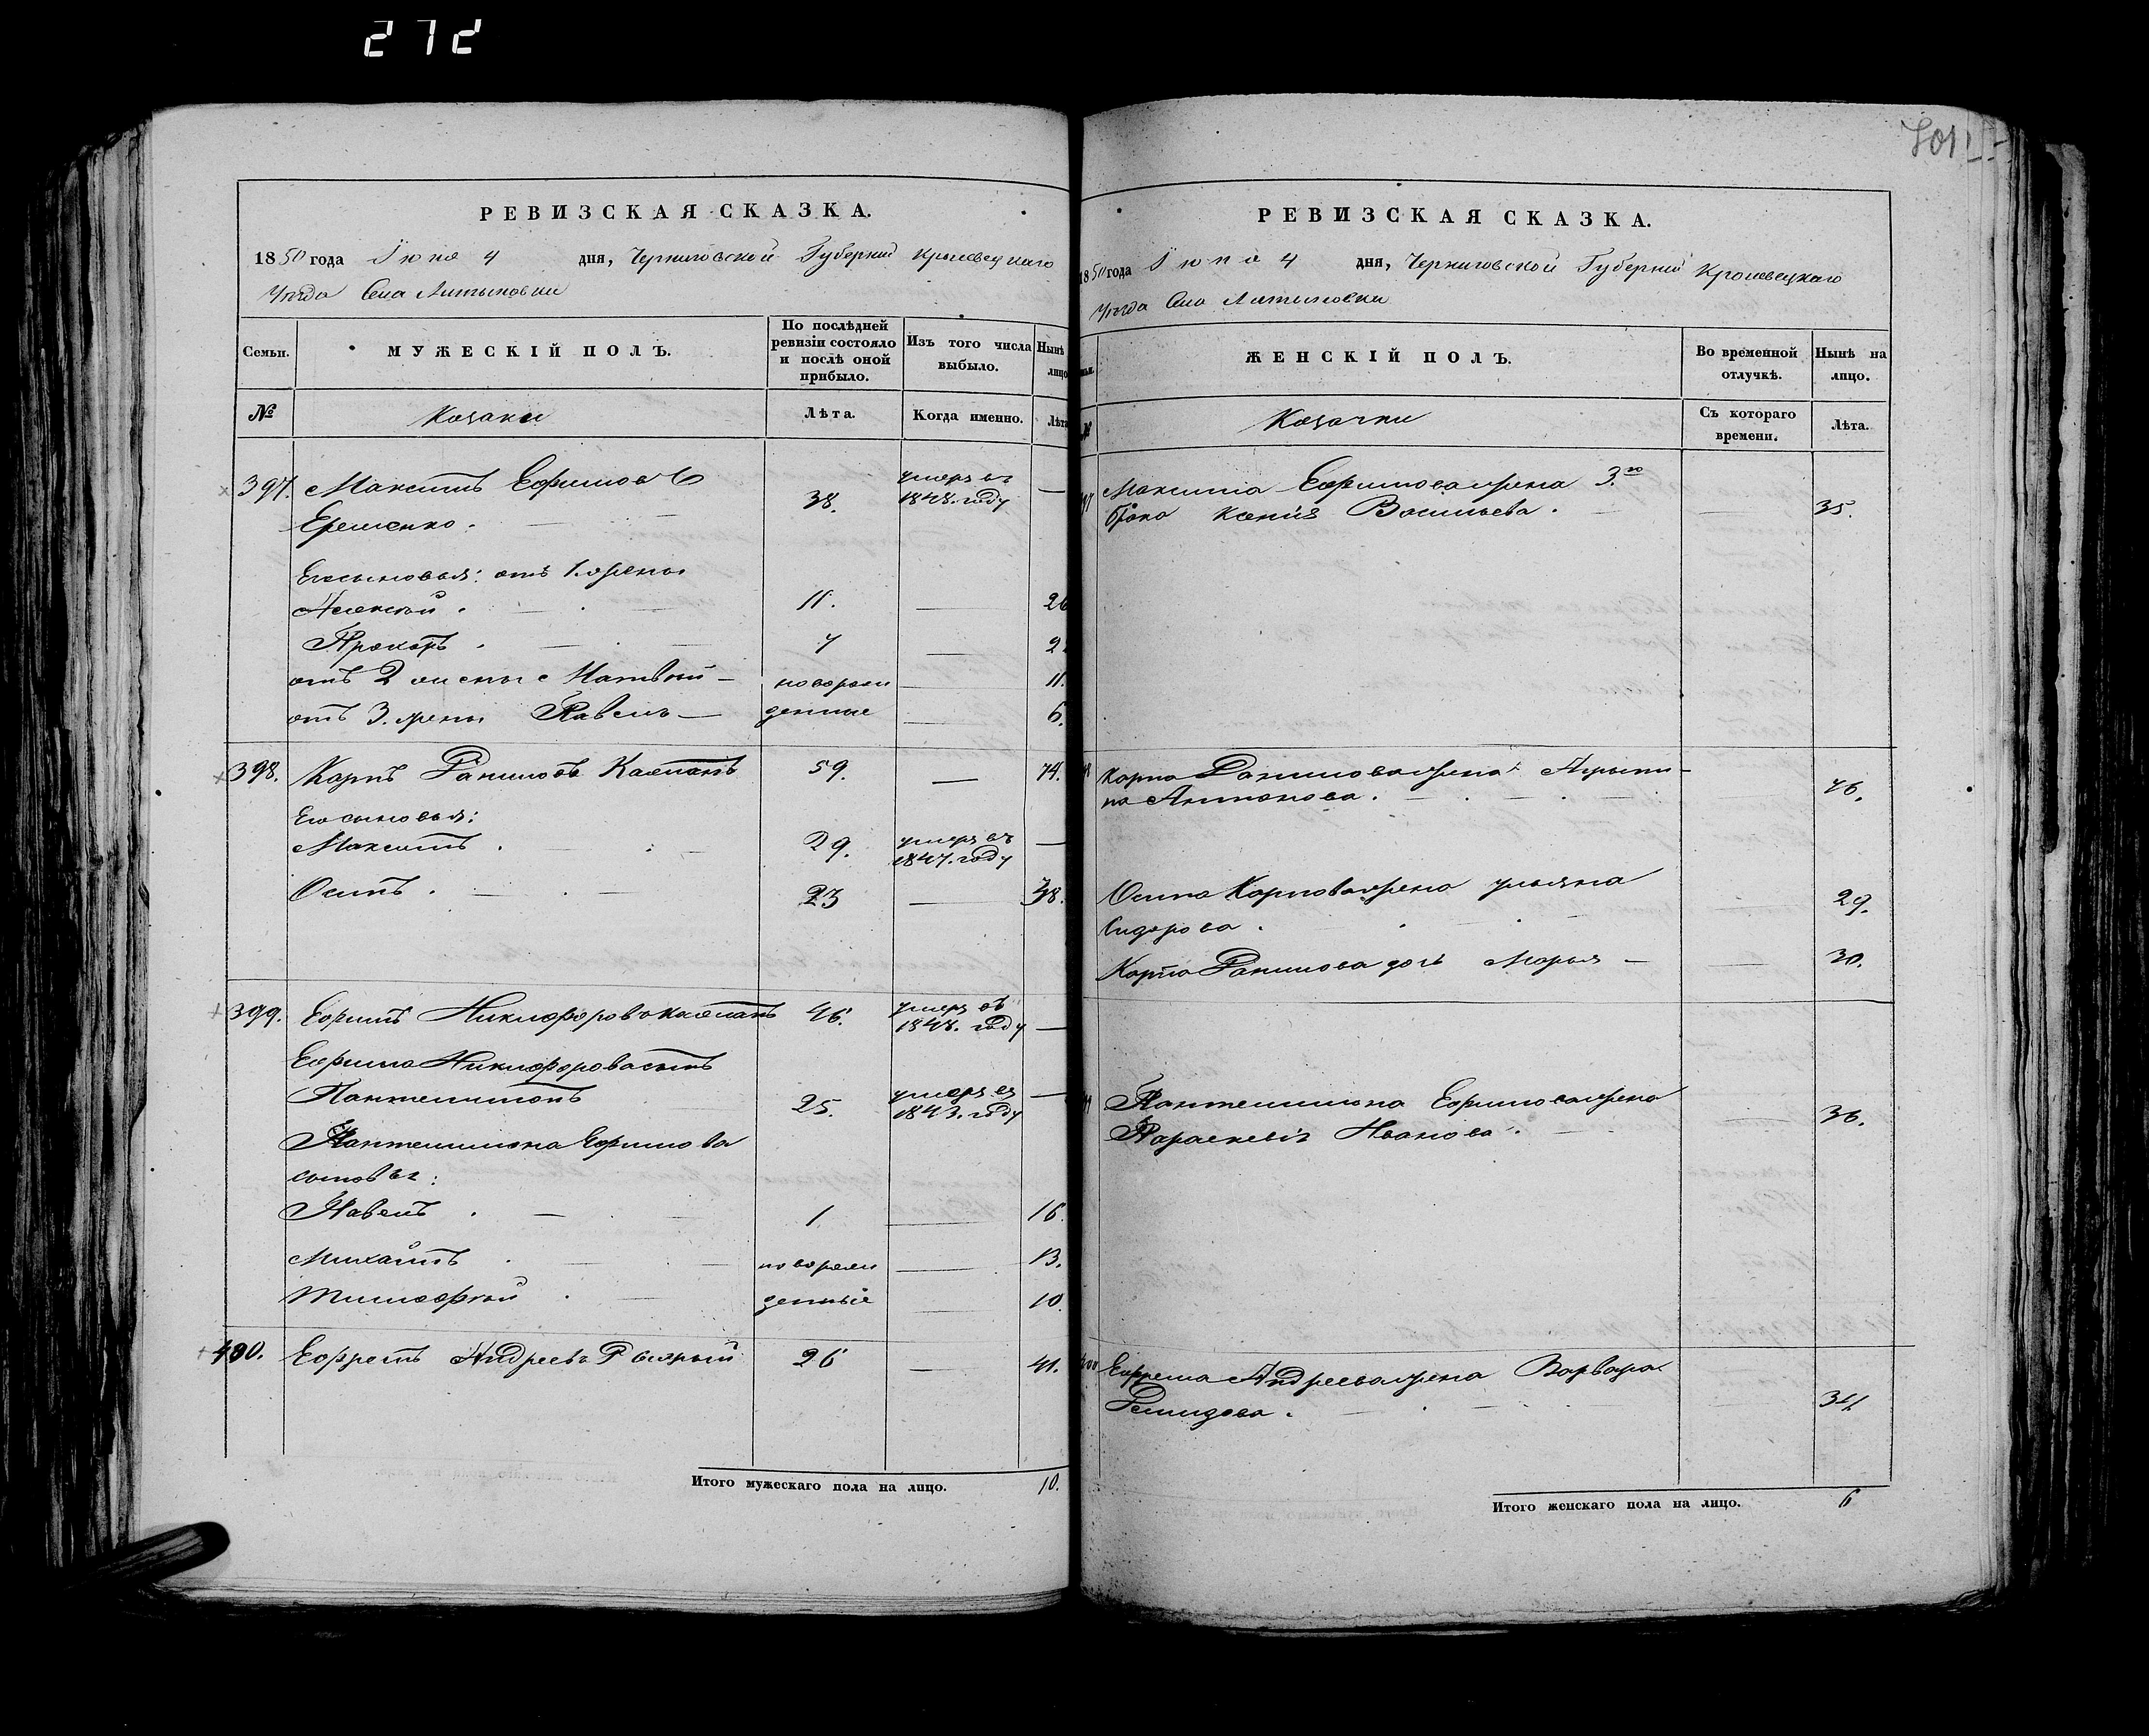 272
РЕВИЗСКАЯ СКАЗКА.
1850 года Іюня 4 дня, Черниговской Губерніи Кролевецкаго
Уѣзда Села
Семьи.
МУЖЕСКІЙ ПОЛЪ.
По послѣдней ревизіи состояло и послѣ оной прибыло.
Изъ того числа выбыло.
Нынѣ лицо
№
Козаки
Лѣта.
Когда именно.
Лѣта
397. Максимъ Ефимовъ 38. умеръ въ 1848. году —
Еременко.
Его сыновья: отъ 1 жены
Алексѣй. 11. — 26
Прокопъ. 7 — 2
отъ 2 жены Матвѣй — новорож — 11.
отъ 3. жены Павелъ — денные — 6.
398. Карпъ Даниловъ 59. — 74.
Его сыновья:
Максимъ. 29. умеръ въ 1847. году —
Осипъ. 23 — 38.
399. Ефимъ Никифоровъ 46. умеръ въ 1848. году —
Ефима Никифорова сынъ
Пантелимонъ 25. умеръ въ 1843. году —
Пантелимона Ефимова
сыновья:
Павелъ. 1 — 16.
Михаилъ. новорож — 13.
Тимофѣй. денные — 10.
400. Ефремъ Андреевъ 26 — 41.
Итого мужескаго пола на лицо. 10.
РЕВИЗСКАЯ СКАЗКА.
1850 года Іюня 4 дня, Черниговской Губерніи Кролевецкаго
Уѣзда Села
ЖЕНСКІЙ ПОЛЪ.
Во временной отлучкѣ.
Нынѣ на лицо.
№
Козачки
Съ котораго времени.
Лѣта.
Максима Ефимова жена 3го
брака Ксенія Васильева. — 35.
Карпа Данилова жена
на Антонова. 76.
Осипа Карпова жена Ульяна
Сидорова. — 29.
Карпа Данилова дочь Марья — — 30.
Пантелимона Ефимова жена
Параскевія Иванова. — 36.
400 Ефрема Андреева жена Варвара
Демидова. — 34
Итого женскаго пола на лицо. 6